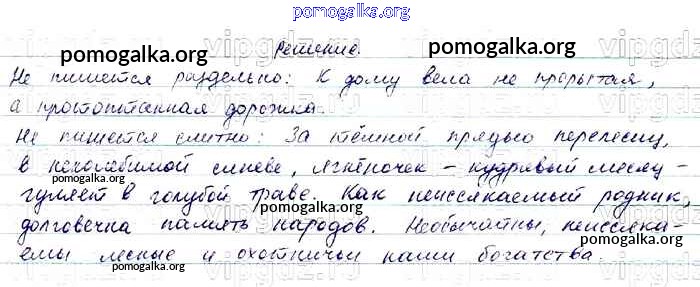 pomogalka.org
Решение.
pomogalka.org pomogalka.org
Не пишется раздельно: К дому вела не прорытая,
а протоптанная дорожка.
Не пишется слитно: За тёмной прядью перелесиц,
в неколебимой синеве, ягнёночек – кудрявый месяц –
pomogalka.org
гуляет в голубой траве. Как неиссякаемый родник,
pomogalka.org
долговечна память народов. Необычайны, неиссяка-
pomogalka.org
емы лесные и охотничьи наши богатства.
pomogalka.org